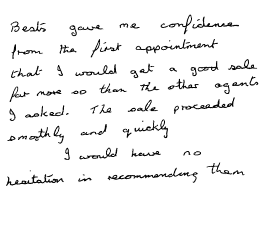 Beats gave me confidence
from the first appointment
that I would get a good sale
far more so than the other agents
I asked. The sale proceeded
smoothly and quickly
I would have no
hesitation in recommending them